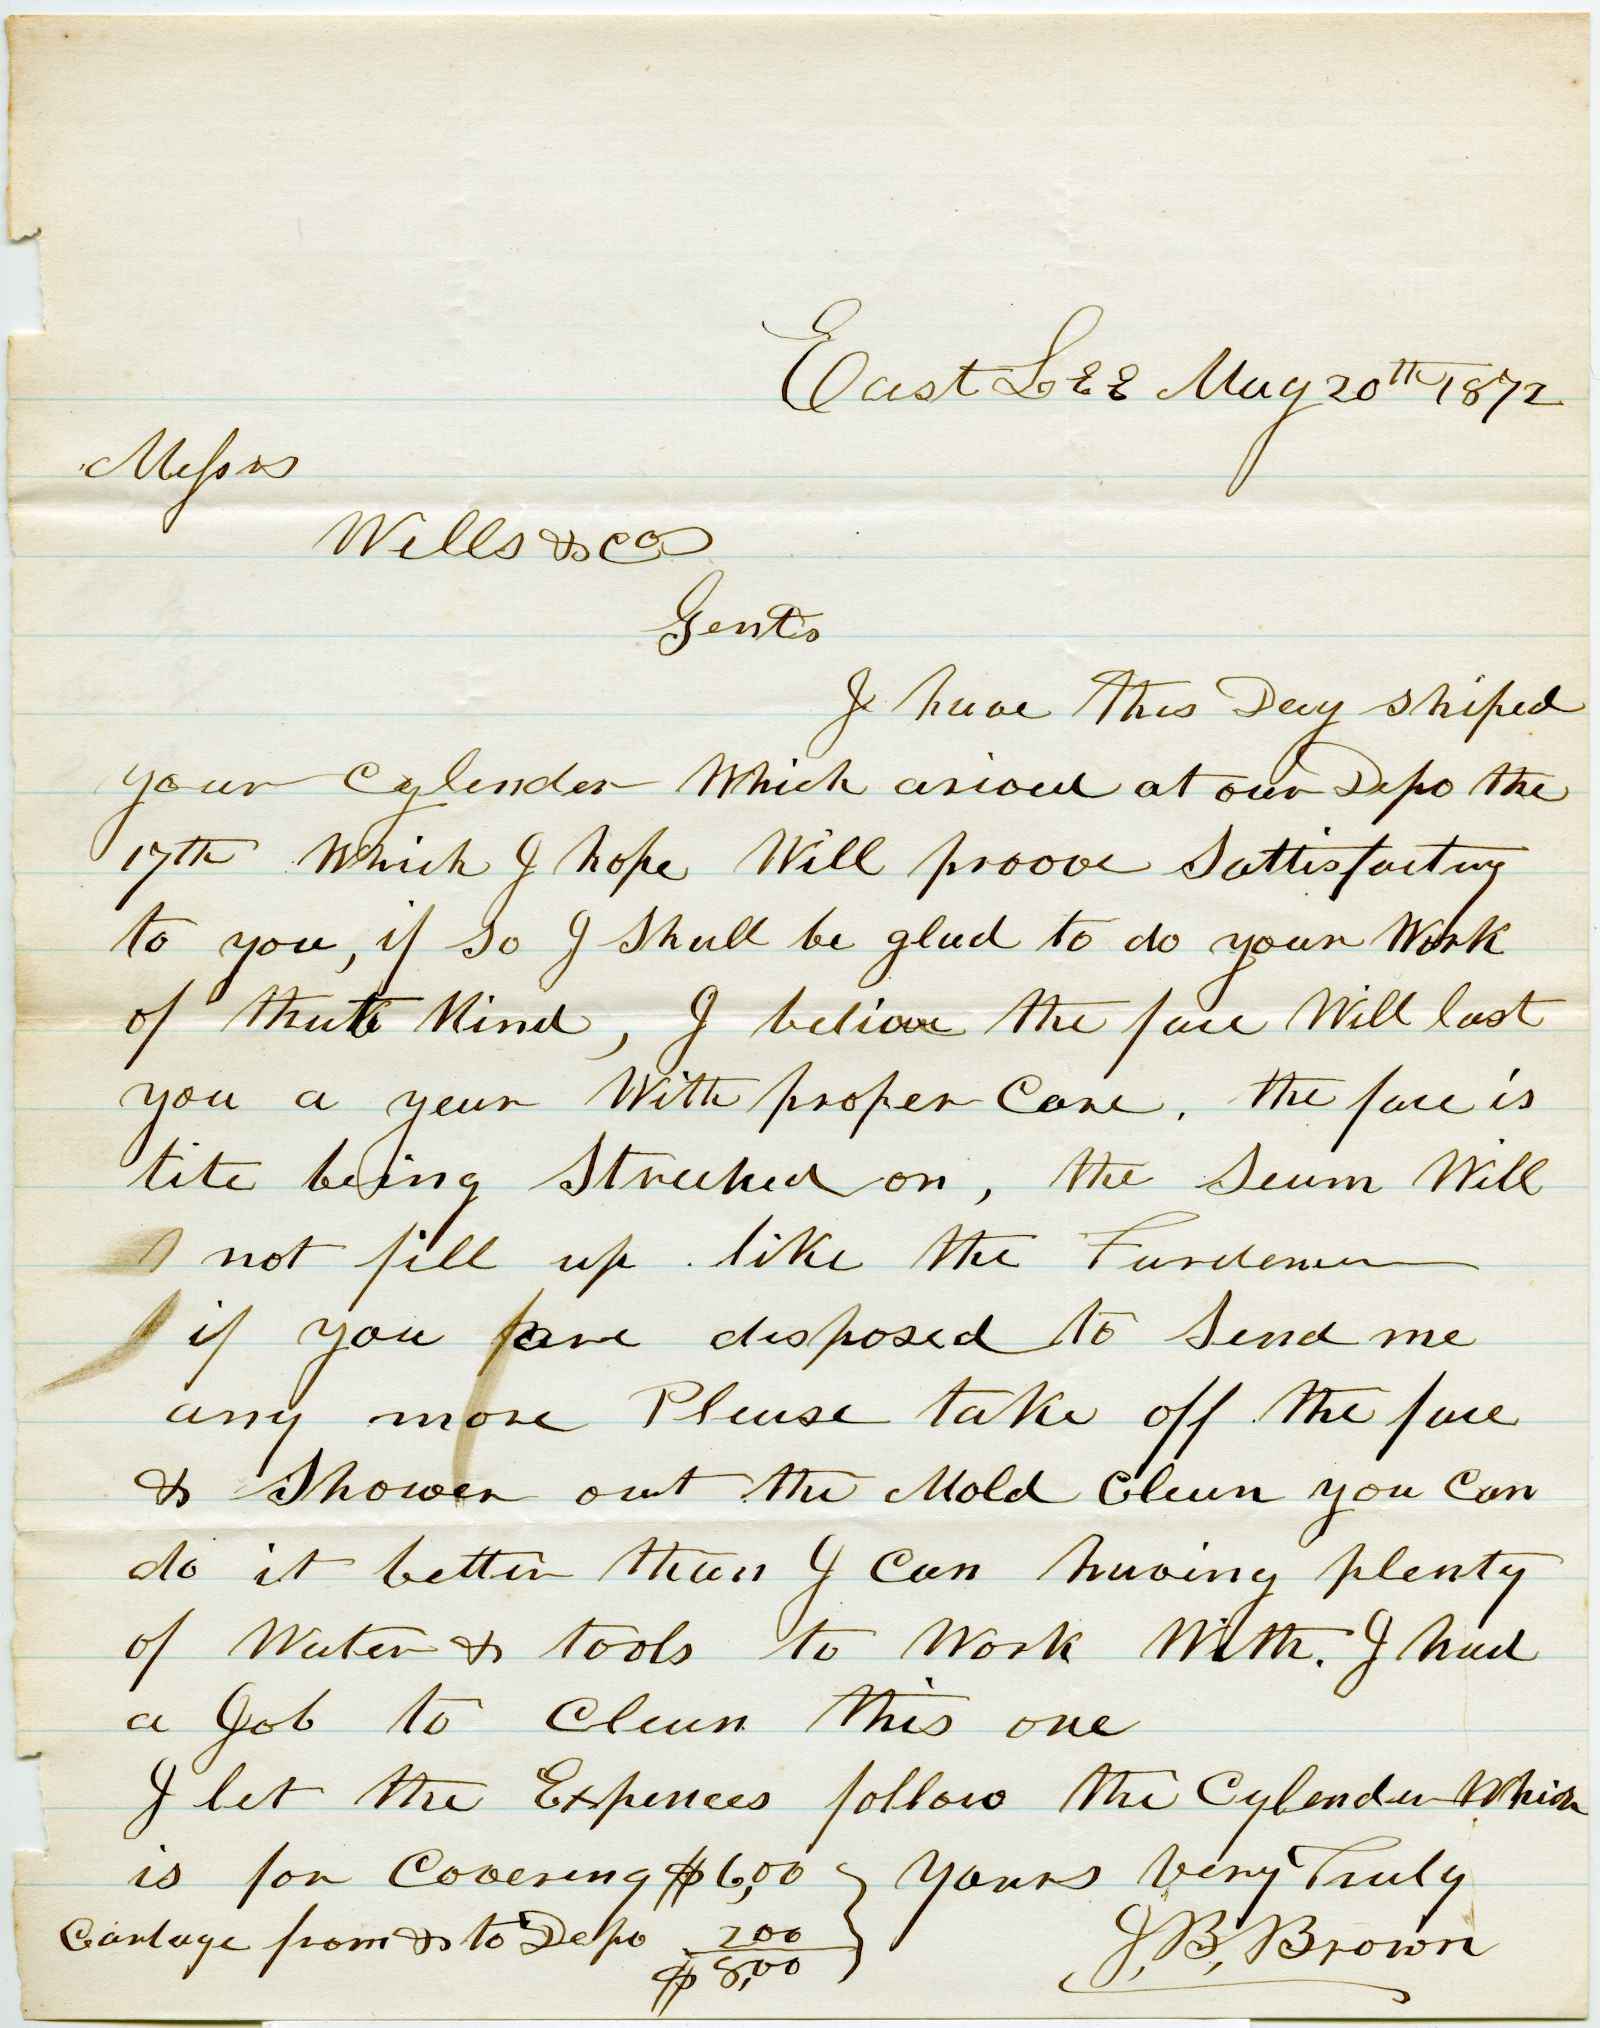 East Lee May 20th 1872
Messrs
Wells & Co
Gents
I have this Day shiped
your Cylender Which arioved at our Depo the
17th Which I hope Will proove Sattisfactory
to you, if So I Shall be glad to do your Work
of that Kind, I beliave the face Will last
you a year With proper Care. the face is
tite being Streched on, the Seam Will
not fill up like the
if you are disposed to Send me
any more Please take off the face
& Shower out the Mold Clean you Can
do it better than I Can having plenty
of Water & tools to Work With. I had
a Job to Clean this one
I let the Expences follow the Cylender Which
is for Covering $6,00 Yours Very Truly
Cartage from & to Depo 200 J, B, Brown
$8,00